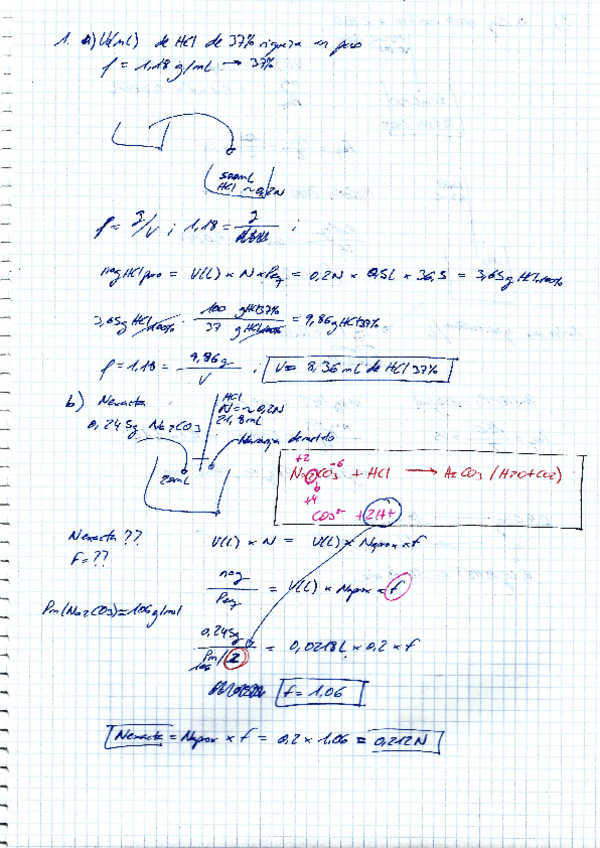 1. a) V(mL) de HCl de 37% riqueza en peso
ρ = 1,18 g/mL → 37%
500mL
HCl ~0,2N
ρ = g/V ; 1,18 = g/ ;
meq HCl puro = V(L) × N × Peq = 0,2N × 0,5L × 36,5 = 3,65g HCl 100%
3,65g HCl 100% · 100 gHCl37% / 37 gHCl100% = 9,86gHCl37%
ρ = 1,18 = 9,86g / V ; V = 8,36 mL de HCl 37%
b) Nexacta
HCl
N=~0,2N
21,8mL
0,245g Na2CO3
Naranja de metilo
20mL
+2 -6
Na2CO3 + HCl → H2CO3 (H2O+CO2)
+4
CO3²⁻ + 2H+
Nexacta ??
F = ??
V(L) × N = V(L) × Naprox × f
Peq = V(L) × Naprox × f
Pm(Na2CO3)=106g/mol
0,245g / Pm/2 = 0,0218L × 0,2 × f
106
f = 1,06
Nexacta = Naprox × f = 0,2 × 1,06 = 0,212N